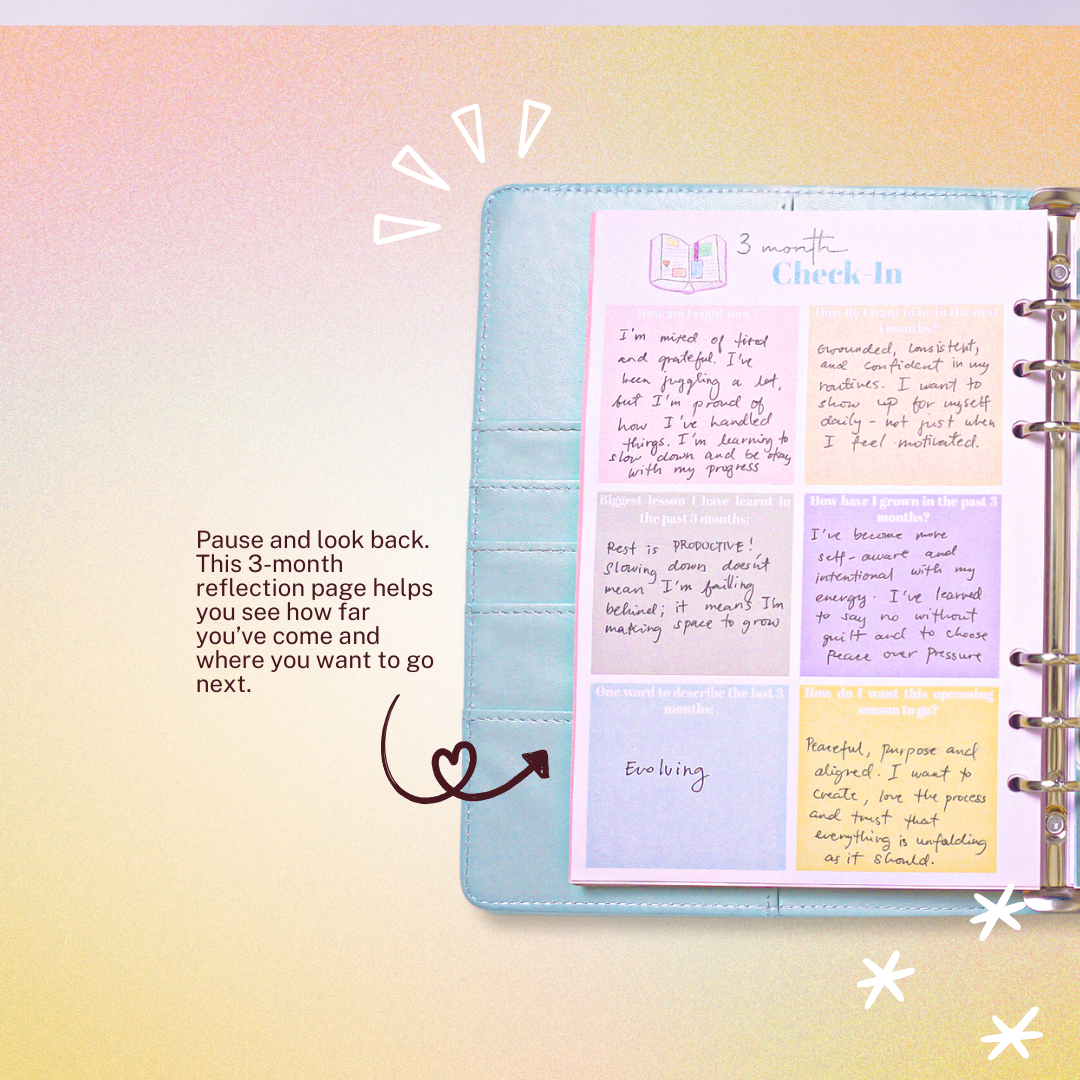 3 month
Check-In
How am I right now?
I'm mixed of tired
and grateful. I've
been juggling a lot,
but I'm proud of
how I've handled
things. I'm learning to
slow down and be okay
with my progress
How do I want to be in the next
3 months?
Grounded, consistent,
and confident in my
routines. I want to
show up for myself
daily - not just when
I feel motivated.
Biggest lesson I have learnt in
the past 3 months:
Rest is PRODUCTIVE!
Slowing down doesn't
mean I'm failling
behind; it means I'm
making space to grow
How have I grown in the past 3
months?
I've become more
self-aware and
intentional with my
energy. I've learned
to say no without
guilt and to choose
Peace over Pressure
One word to describe the last 3
months:
Evolving
How do I want this upcoming
season to go?
Peaceful, purpose and
aligned. I want to
create, love the process
and trust that
everything is unfolding
as it should.
Pause and look back.
This 3-month
reflection page helps
you see how far
you've come and
where you want to go
next.